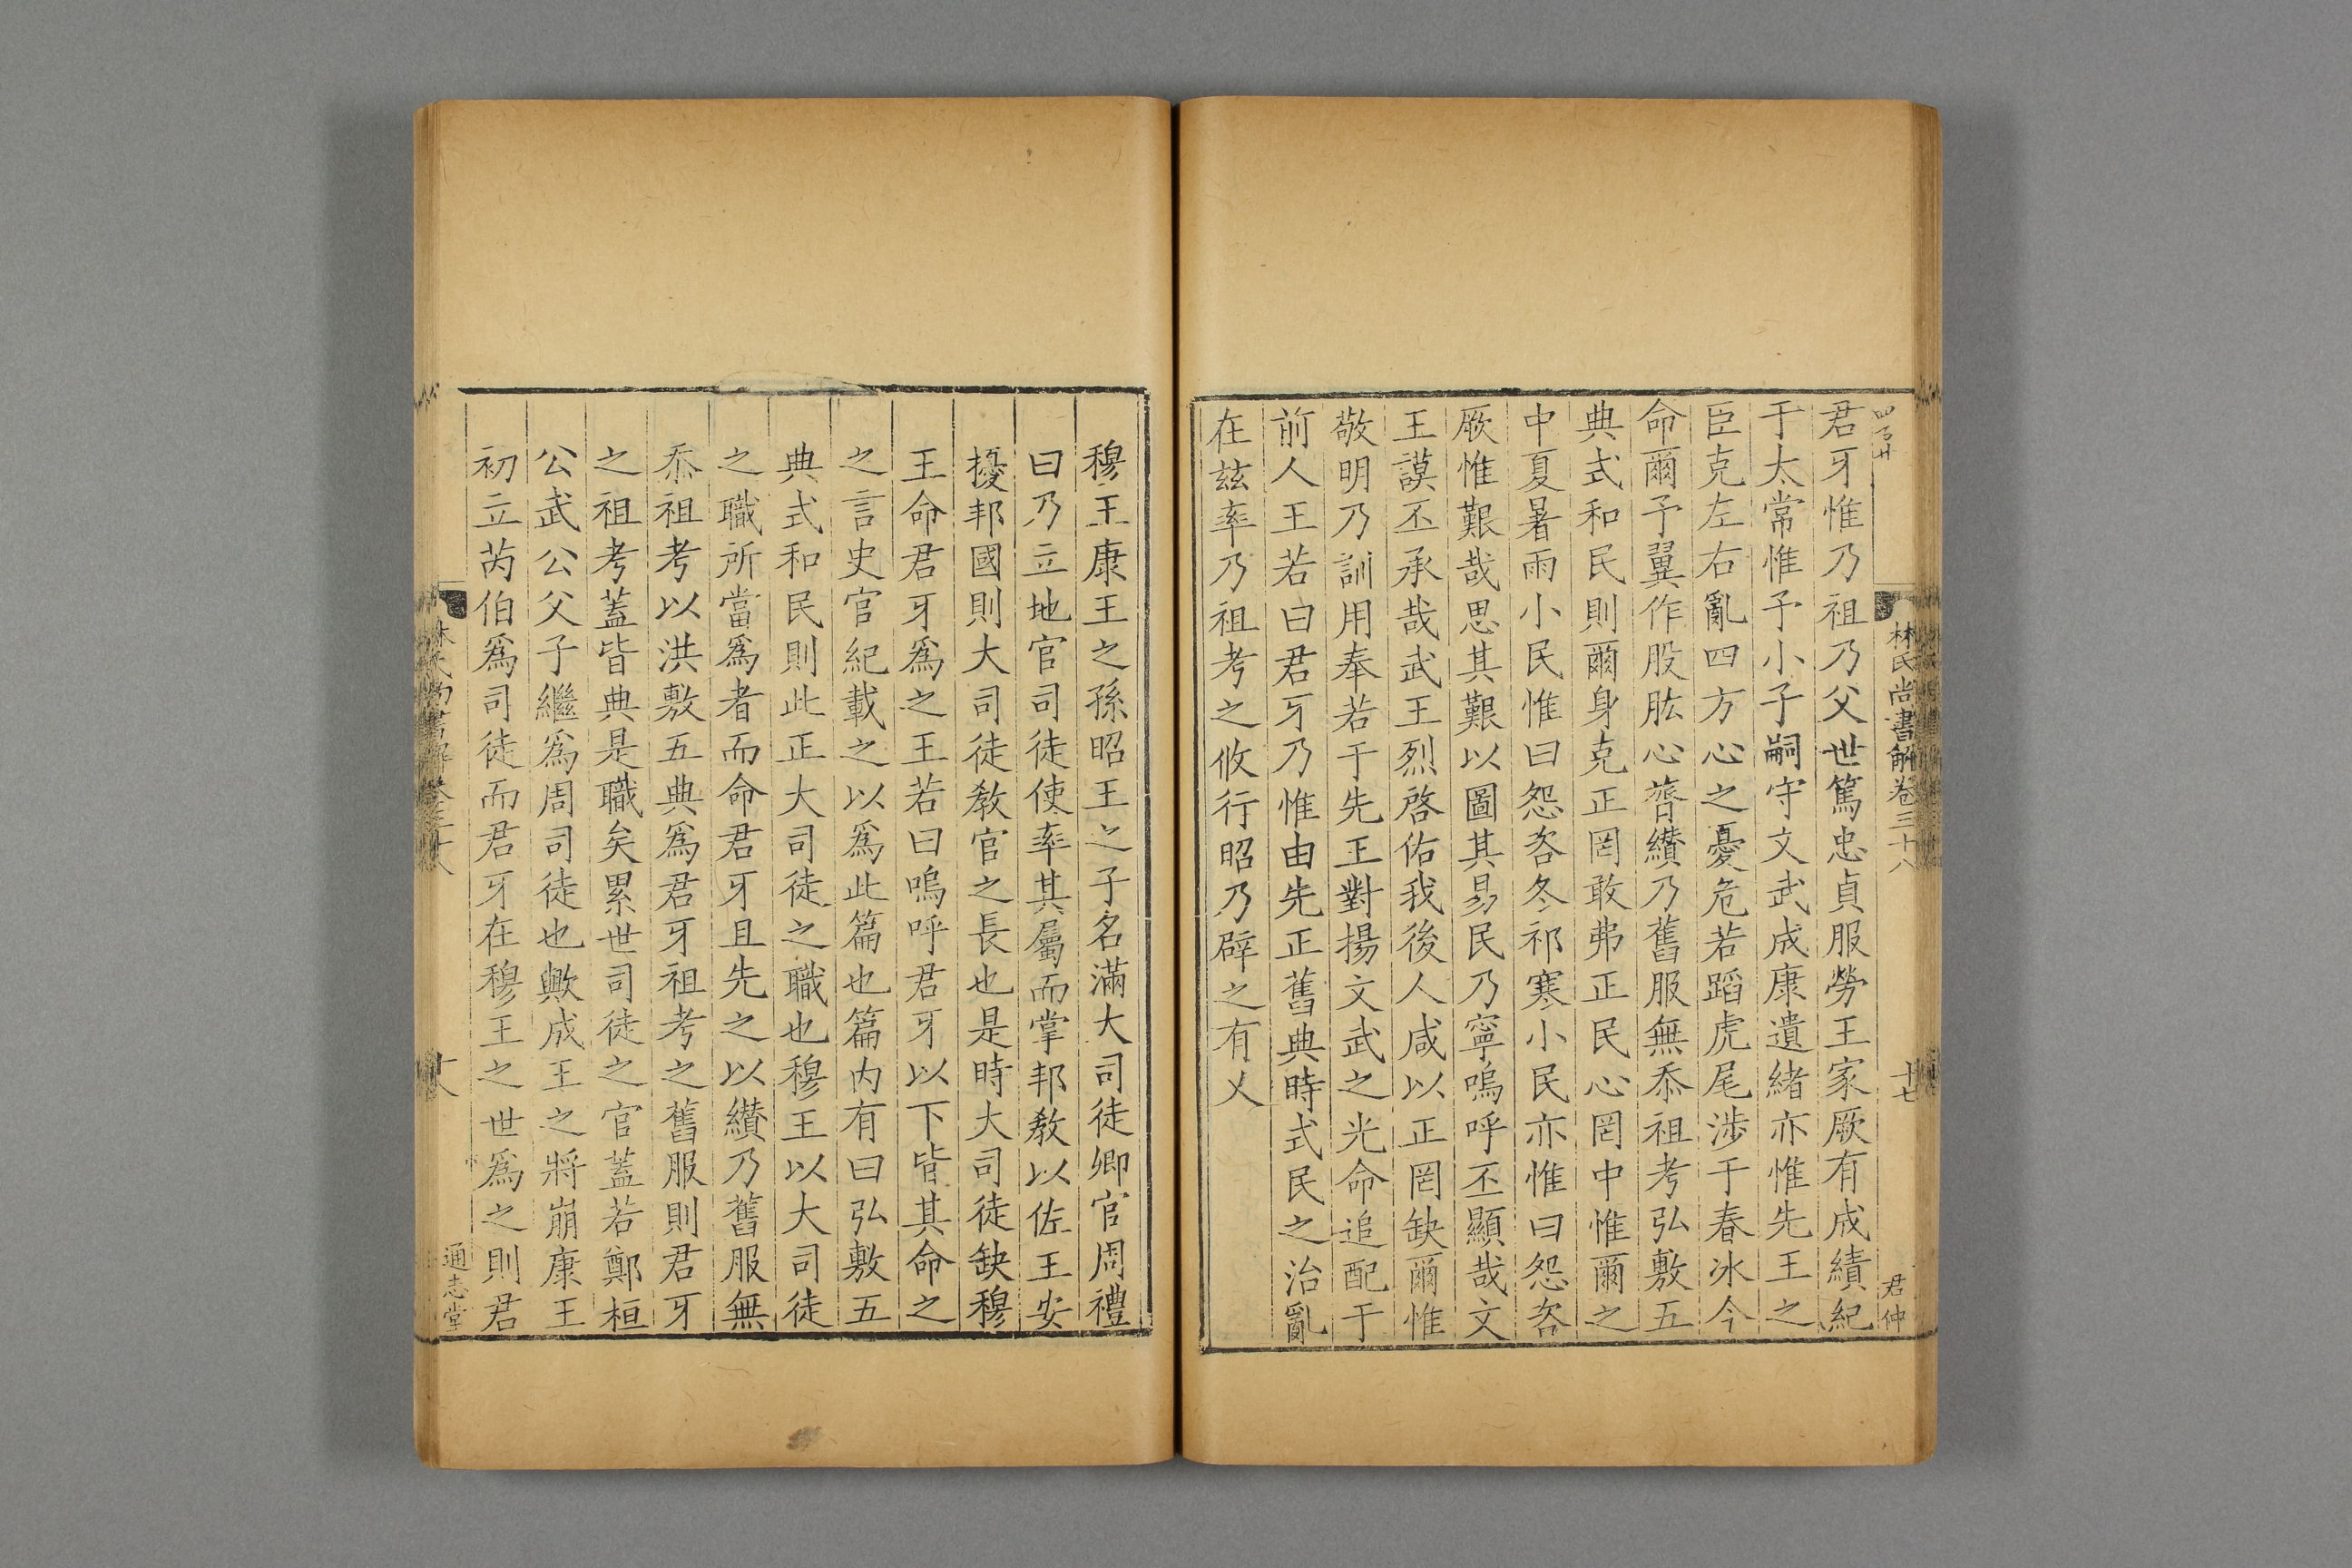 君牙惟乃祖乃父世篤忠貞服勞王家厥有成績紀
于太常惟予小子嗣守文武成康遺緒亦惟先王之
臣克左右亂四方心之憂危若蹈虎尾涉于春冰今
命爾予翼作股肱心膂纘乃舊服無忝祖考弘敷五
典式和民則爾身克正罔敢弗正民心罔中惟爾之
中夏暑雨小民惟曰怨咨冬祁寒小民亦惟曰怨咨
厥惟艱哉思其艱以圖其易民乃寧嗚呼丕顯哉文
王謨丕承哉武王烈啓佑我後人咸以正罔缺爾惟
敬明乃訓用奉若于先王對揚文武之光命追配于
前人王若曰君牙乃惟由先正舊典時式民之治亂
在茲率乃祖考之攸行昭乃辟之有乂
林氏尚書解卷三十八
十七
君仲
穆王康王之孫昭王之子名滿大司徒卿官周禮
曰乃立地官司徒使率其屬而掌邦教以佐王安
擾邦國則大司徒教官之長也是時大司徒缺穆
王命君牙爲之王若曰嗚呼君牙以下皆其命之
之言史官紀載之以爲此篇也篇内有曰弘敷五
典式和民則此正大司徒之職也穆王以大司徒
之職所當爲者而命君牙且先之以纘乃舊服無
忝祖考以洪敷五典爲君牙祖考之舊服則君牙
之祖考蓋皆典是職矣累世司徒之官蓋若鄭桓
公武公父子繼爲周司徒也歟成王之將崩康王
初立芮伯爲司徒而君牙在穆王之世爲之則君
通志堂